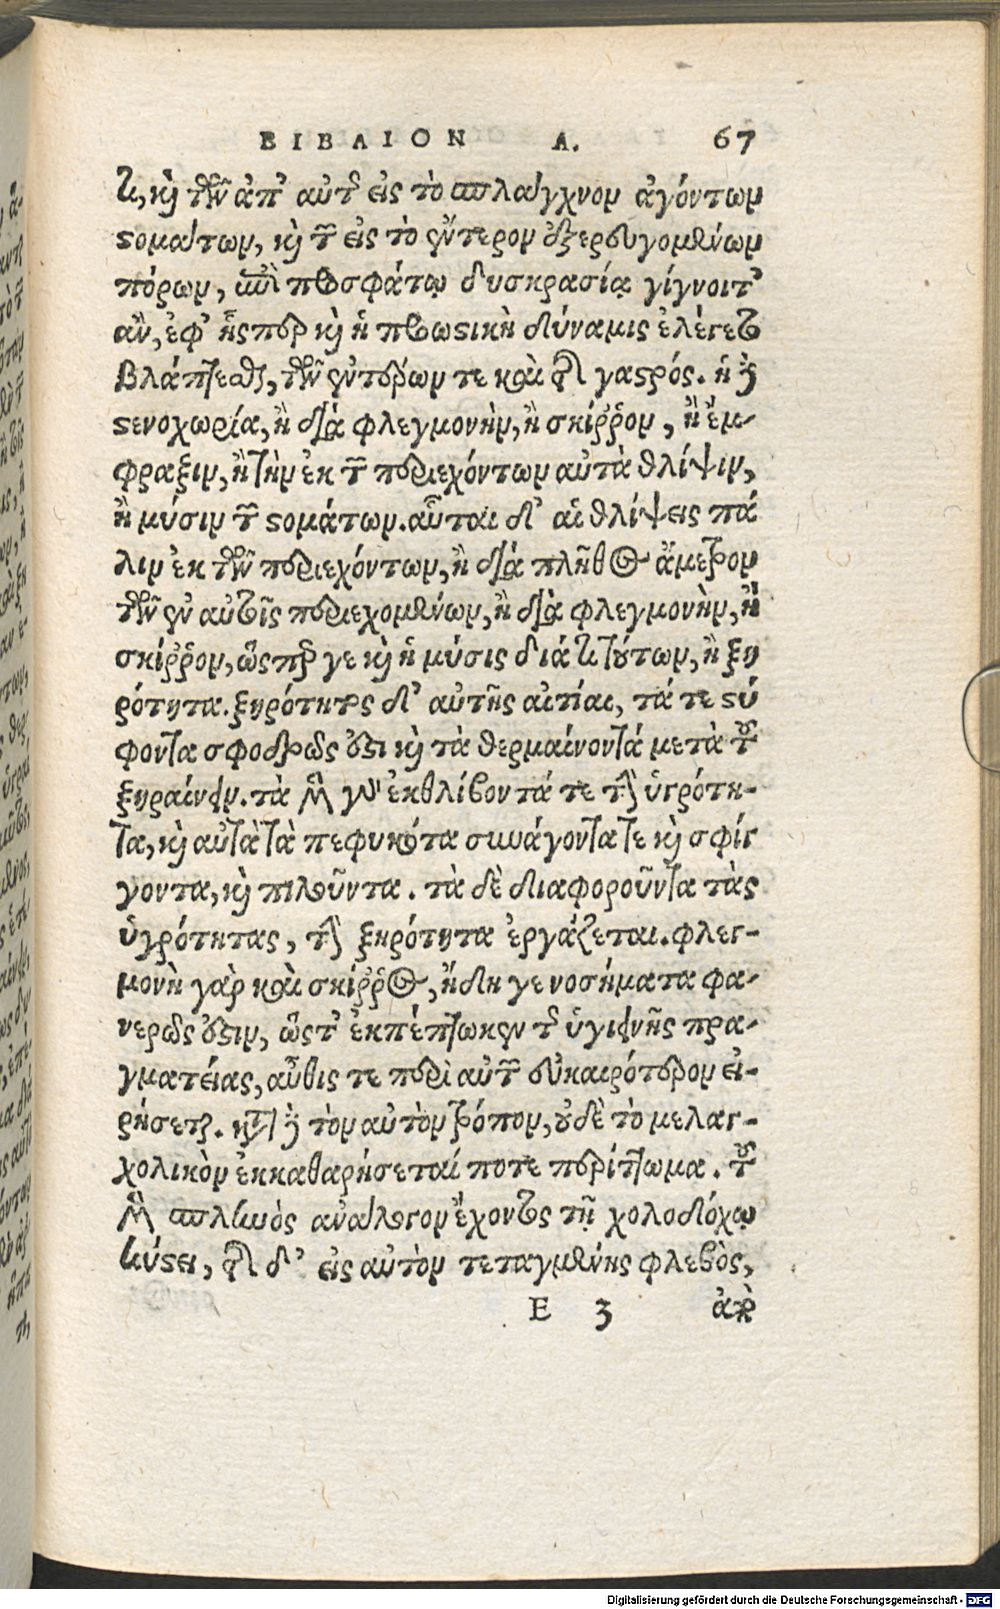 ΒΙΒΛΙΟΝ Α. 67
τε, καὶ τῶν ἀπ' αὐτοῦ εἰς τὸ σπλάγχνον ἀγόντων
στομάτων, καὶ τῶν εἰς τὸ ἔντερον ἐξερευγομένων
πόρων, ἐπὶ προσφάτῳ δυσκρασίᾳ γίγνοιτ'
ἂν, ἐφ' ἧσπερ καὶ ἡ πρωστικὴ δύναμις ἐλέγετο
βλάπτεσθαι, τῶν ἐντέρων τε καὶ τῆς γαστρός. ἡ δὲ
στενοχωρία, ἢ διὰ φλεγμονὴν, ἢ σκίῤῥον, ἢ ἔμ-
φραξιν, ἢ τὴν ἐκ τῶν περιεχόντων αὐτὰ θλίψιν,
ἢ μύσιν τῶν στομάτων. αὗται δ' αἱ θλίψεις πά
λιν ἐκ τῶν περιεχόντων, ἢ διὰ πλῆθος ἄμετρον
τῶν ἐν αὐτοῖς περιεχομένων, ἢ διὰ φλεγμονὴν, ἢ
σκίῤῥον, ὥσπερ γε καὶ ἡ μύσις διά τε τούτων, ἢ ξη
ρότητα. ξηρότητος δ' αὐτῆς αἰτίαι, τά τε στύ
φοντα σφοδρῶς ἐστι καὶ τὰ θερμαίνοντά μετὰ τοῦ
ξηραίνειν. τὰ μὲν γὰρ ἐκθλίβοντά τε τὴν ὑγρότη-
τα, καὶ αὐτὰ τὰ πεφυκότα συνάγοντα τε καὶ σφίγ
γοντα, καὶ πιλοῦντα. τὰ δὲ διαφοροῦντα τὰς
ὑγρότητας, τὴν ξηρότητα ἐργάζεται. φλεγ-
μονὴ γὰρ καὶ σκίῤῥος, ἤδη γε νοσήματα φα-
νερῶς ἐστιν, ὥστ' ἐκπέπτωκεν τοῦ ὑγιεινῆς πρα-
γματείας, αὖθις τε περὶ αὐτῶν εὐκαιρότερον εἰ-
ρήσεται. κατὰ δὲ τὸν αὐτὸν τρόπον, οὐδὲ τὸ μελαγ-
χολικὸν ἐκκαθαρήσεταί ποτε περίττωμα. τοῦ
μὲν σπληνὸς ἀνάλογον ἔχοντος τῇ χοληδόχῳ
κύστει, τῆς δ' εἰς αὐτὸν τεταγμένης φλεβὸς,
E 3 ἀρ